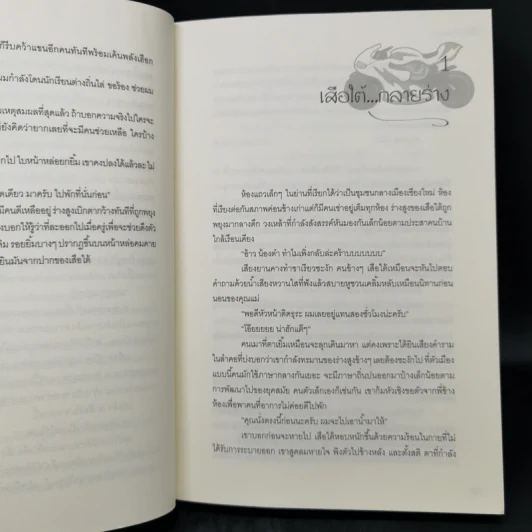 ก็รีบคว้าแขนอีกคนทันทีพร้อมเค้นพลังเฮือก
ผมกำลังโดนนักเรียนต่างถิ่นไล่ ขอร้อง ช่วยผม
เหตุสมผลที่สุดแล้ว ถ้าบอกความจริงไปใครจะ
ยังคิดว่ายากเลยที่จะมีคนช่วยเหลือ ใครบ้าง
กไป ใบหน้าหล่อยกยิ้ม เขาคงปลงได้แล้วละไม่
ดเดียว มาครับ ไปพักที่นั่นก่อน"
มีคนดีเหลืออยู่ ร่างสูงเบิกตากว้างทันทีที่ถูกพยุง
งบอกให้รู้ว่าที่ละออกไปเมื่อครู่เพื่อจะช่วยดึงตัว
รอยยิ้มบางๆ ปรากฏขึ้นบนหน้าหล่อคมคาย
ยินมันจากปากของเสือใต้
1
เสือใต้...กลายร่าง
ห้องแถวเล็กๆ ในย่านที่เรียกได้ว่าเป็นชุมชนกลางเมืองเชียงใหม่ ห้อง
ที่เรียงต่อกันสภาพค่อนข้างเก่าแต่ก็มีคนเช่าอยู่เต็มทุกห้อง ร่างสูงของเสือใต้ถูก
พยุงมากลางดึก วงเหล้าที่กำลังสังสรรค์หันมองกันเล็กน้อยตามประสาคนบ้าน
ใกล้เรือนเคียง
"อ้าว น้องดำ ทำไมเพิ่งกลับล่ะคร้าบบบบบบ"
เสียงยานคางทำขาเรียวชะงัก คนข้างๆ เสือใต้เหมือนจะหันไปตอบ
คำถามด้วยน้ำเสียงหวานใสที่ฟังแล้วสบายหูชวนเคลิ้มหลับเหมือนนิทานก่อน
นอนของคุณแม่
"พอดีหัวหน้าติดธุระ ผมเลยอยู่แทนสองชั่วโมงน่ะครับ"
"โอ๊ยยยยย น่าฮักแต๊ๆ"
คนเมาที่ตาเยิ้มเหมือนจะลุกเดินมาหา แต่คงเพราะได้ยินเสียงคำราม
ในลำคอที่บ่งบอกว่าเขากำลังทรมานของร่างสูงข้างๆ เลยต้องชะงักไป ที่ตัวเมือง
แบบนี้คนมักใช้ภาษากลางกันเยอะ จะมีภาษาถิ่นปนออกมาบ้างเล็กน้อยตาม
การพัฒนาไปของยุคสมัย คนตัวเล็กเองก็เช่นกัน เขาก้มหัวเชิงขอตัวจากพี่ข้าง
ห้องเพื่อพาคนที่อาการไม่ค่อยดีไปพัก
"คุณนั่งตรงนี้ก่อนนะครับ ผมจะไปเอาน้ำมาให้"
เขาบอกก่อนจะหายไป เสือใต้หอบหนักขึ้นด้วยความร้อนในกายที่ไม่
ได้รับการระบายออก เขาสูดลมหายใจ พิงตัวไปข้างหลัง และตั้งสติ ตาที่กำลัง